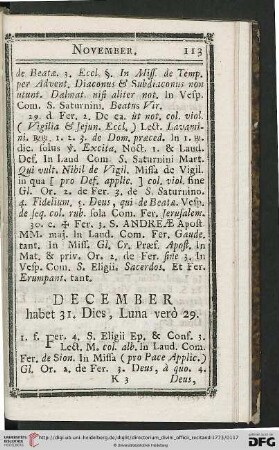 November. 113
de Beatæ. 3. Eccl. §. In Miss. de Temp.
per Advent. Diaconus & Subdiaconus non
utunt. Dalmat. nisi aliter not. In Vesp.
Com. S. Saturnini. Beatus Vir.
29. d Fer. 2. De ea. ut not. col. viol.
( Vigilia & Jejun. Eccl. ) Lect. Lavami-
ni. 1. 2. 3. de Dom. præced. In 1. N.
dic. solus ℣. Excita, Noct. 1. & Laud.
Def. In Laud Com S. Saturnini Mart.
Qui vult. Nihil de Vigil. Missa de Vigil.
in qua [ pro Def. applic. ] col. viol. sine
Gl. Or. 2. de Fer. 3. de S. Saturnino.
4. Fidelium, 5. Deus, qui de Beatæ. Vesp.
de seq. col. rub. sola Com. Fer. Jerusalem.
30. c. ✠ Fer. 3. S. ANDREÆ Apost
MM. maj. In Laud. Com. Fer. Gaude.
tant. In Miss. Gl. Cr. Præf. Apost. In
Mat. & priv. Or. 2. de Fer. sine 3. In
Vesp. Com. S. Eligii. Sacerdos. Et Fer.
Erumpant. tant.
DECEMBER
habet 31. Dies, Luna verò 29.
1. f. Fer. 4. S. Eligii Ep. & Conf. 3.
Lect. M. col. alb. In Laud. Com.
Fer. de Sion. In Missa ( pro Pace Applic. )
Gl. Or. 2. de Fer. 3. Deus, à quo. 4.
K 3 Deus,
© Universitätsbibliothek Heidelberg
DFG